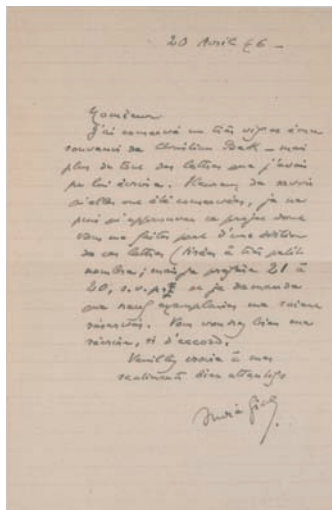 20 Avril 46 –
Monsieur
J'ai conservé un très vif
souvenir de Christian Beck – mais
plus du tout des lettres que j'avais
pu lui écrire. Heureux de savoir
qu'elles ont été conservées, je ne
puis qu'approuver ce projet dont
vous me faites part d'une édition
de ces lettres (tirées à très petit
nombre; mais je préfère 21 à
20, s.v.p. et je demande
que neuf exemplaires me soient
réservés. Vous voudrez bien me
récrire, si d'accord.
Veuillez croire à mes
sentiments bien attentifs
André Gide